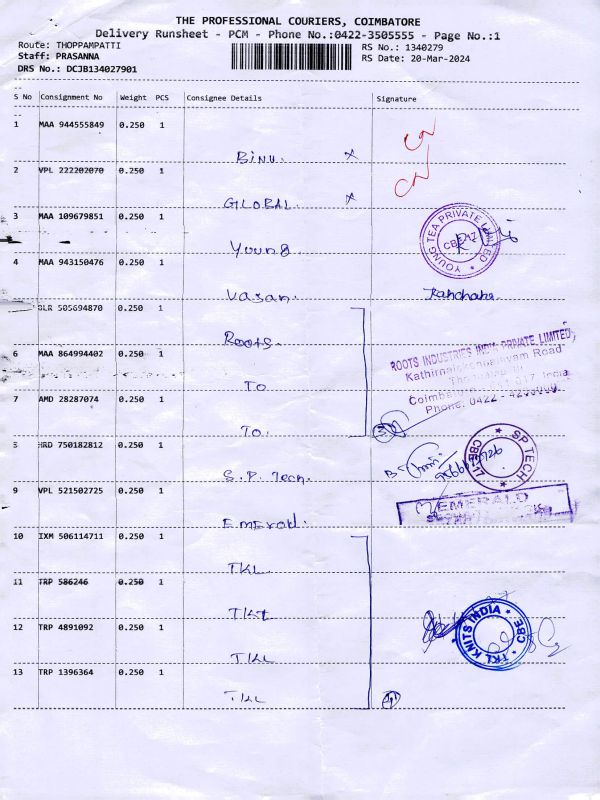 THE PROFESSIONAL COURIERS, COIMBATORE
Delivery Runsheet - PCM - Phone No.:0422-3505555 - Page No.:1
Route: THOPPAMPATTI
RS No.: 1340279
Staff: PRASANNA
RS Date: 20-Mar-2024
DRS No.: DCJB134027901
S No Consignment No Weight PCS Consignee Details Signature
1 MAA 944555849 0.250 1
BINU. x
2 VPL 222202070 0.250 1
GLOBAL. x
3 MAA 109679851 0.250 1
YOUNG TEA PRIVATE LIMITED
CBE-17
Young
4 MAA 943150476 0.250 1
Vasan.
BLR 505694870 0.250 1
Roots.
ROOTS INDUSTRIES INDIA PRIVATE LIMITED,
6 MAA 864994402 0.250 1
Kathirnaickenpalayam Road
TO
7 AMD 28287074 0.250 1
Coimbatore
Phone: 0422 -
TO. 3
8 HRD 750182812 0.250 1
SP TECH
CBE-17
S.P. Tech.
9 VPL 521502725 0.250 1
EMERALD
Emerald.
10 IXM 506114711 0.250 1
TKL.
11 TRP 586246 0.250 1
TKL
TKL KNITS INDIA CBE
12 TRP 4891092 0.250 1
TKL
13 TRP 1396364 0.250 1
TKL 4